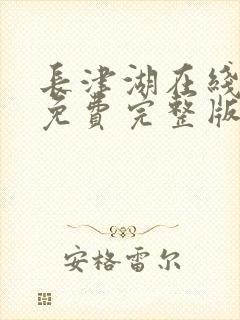 長津湖在綫
免費完整版
安格雷尔